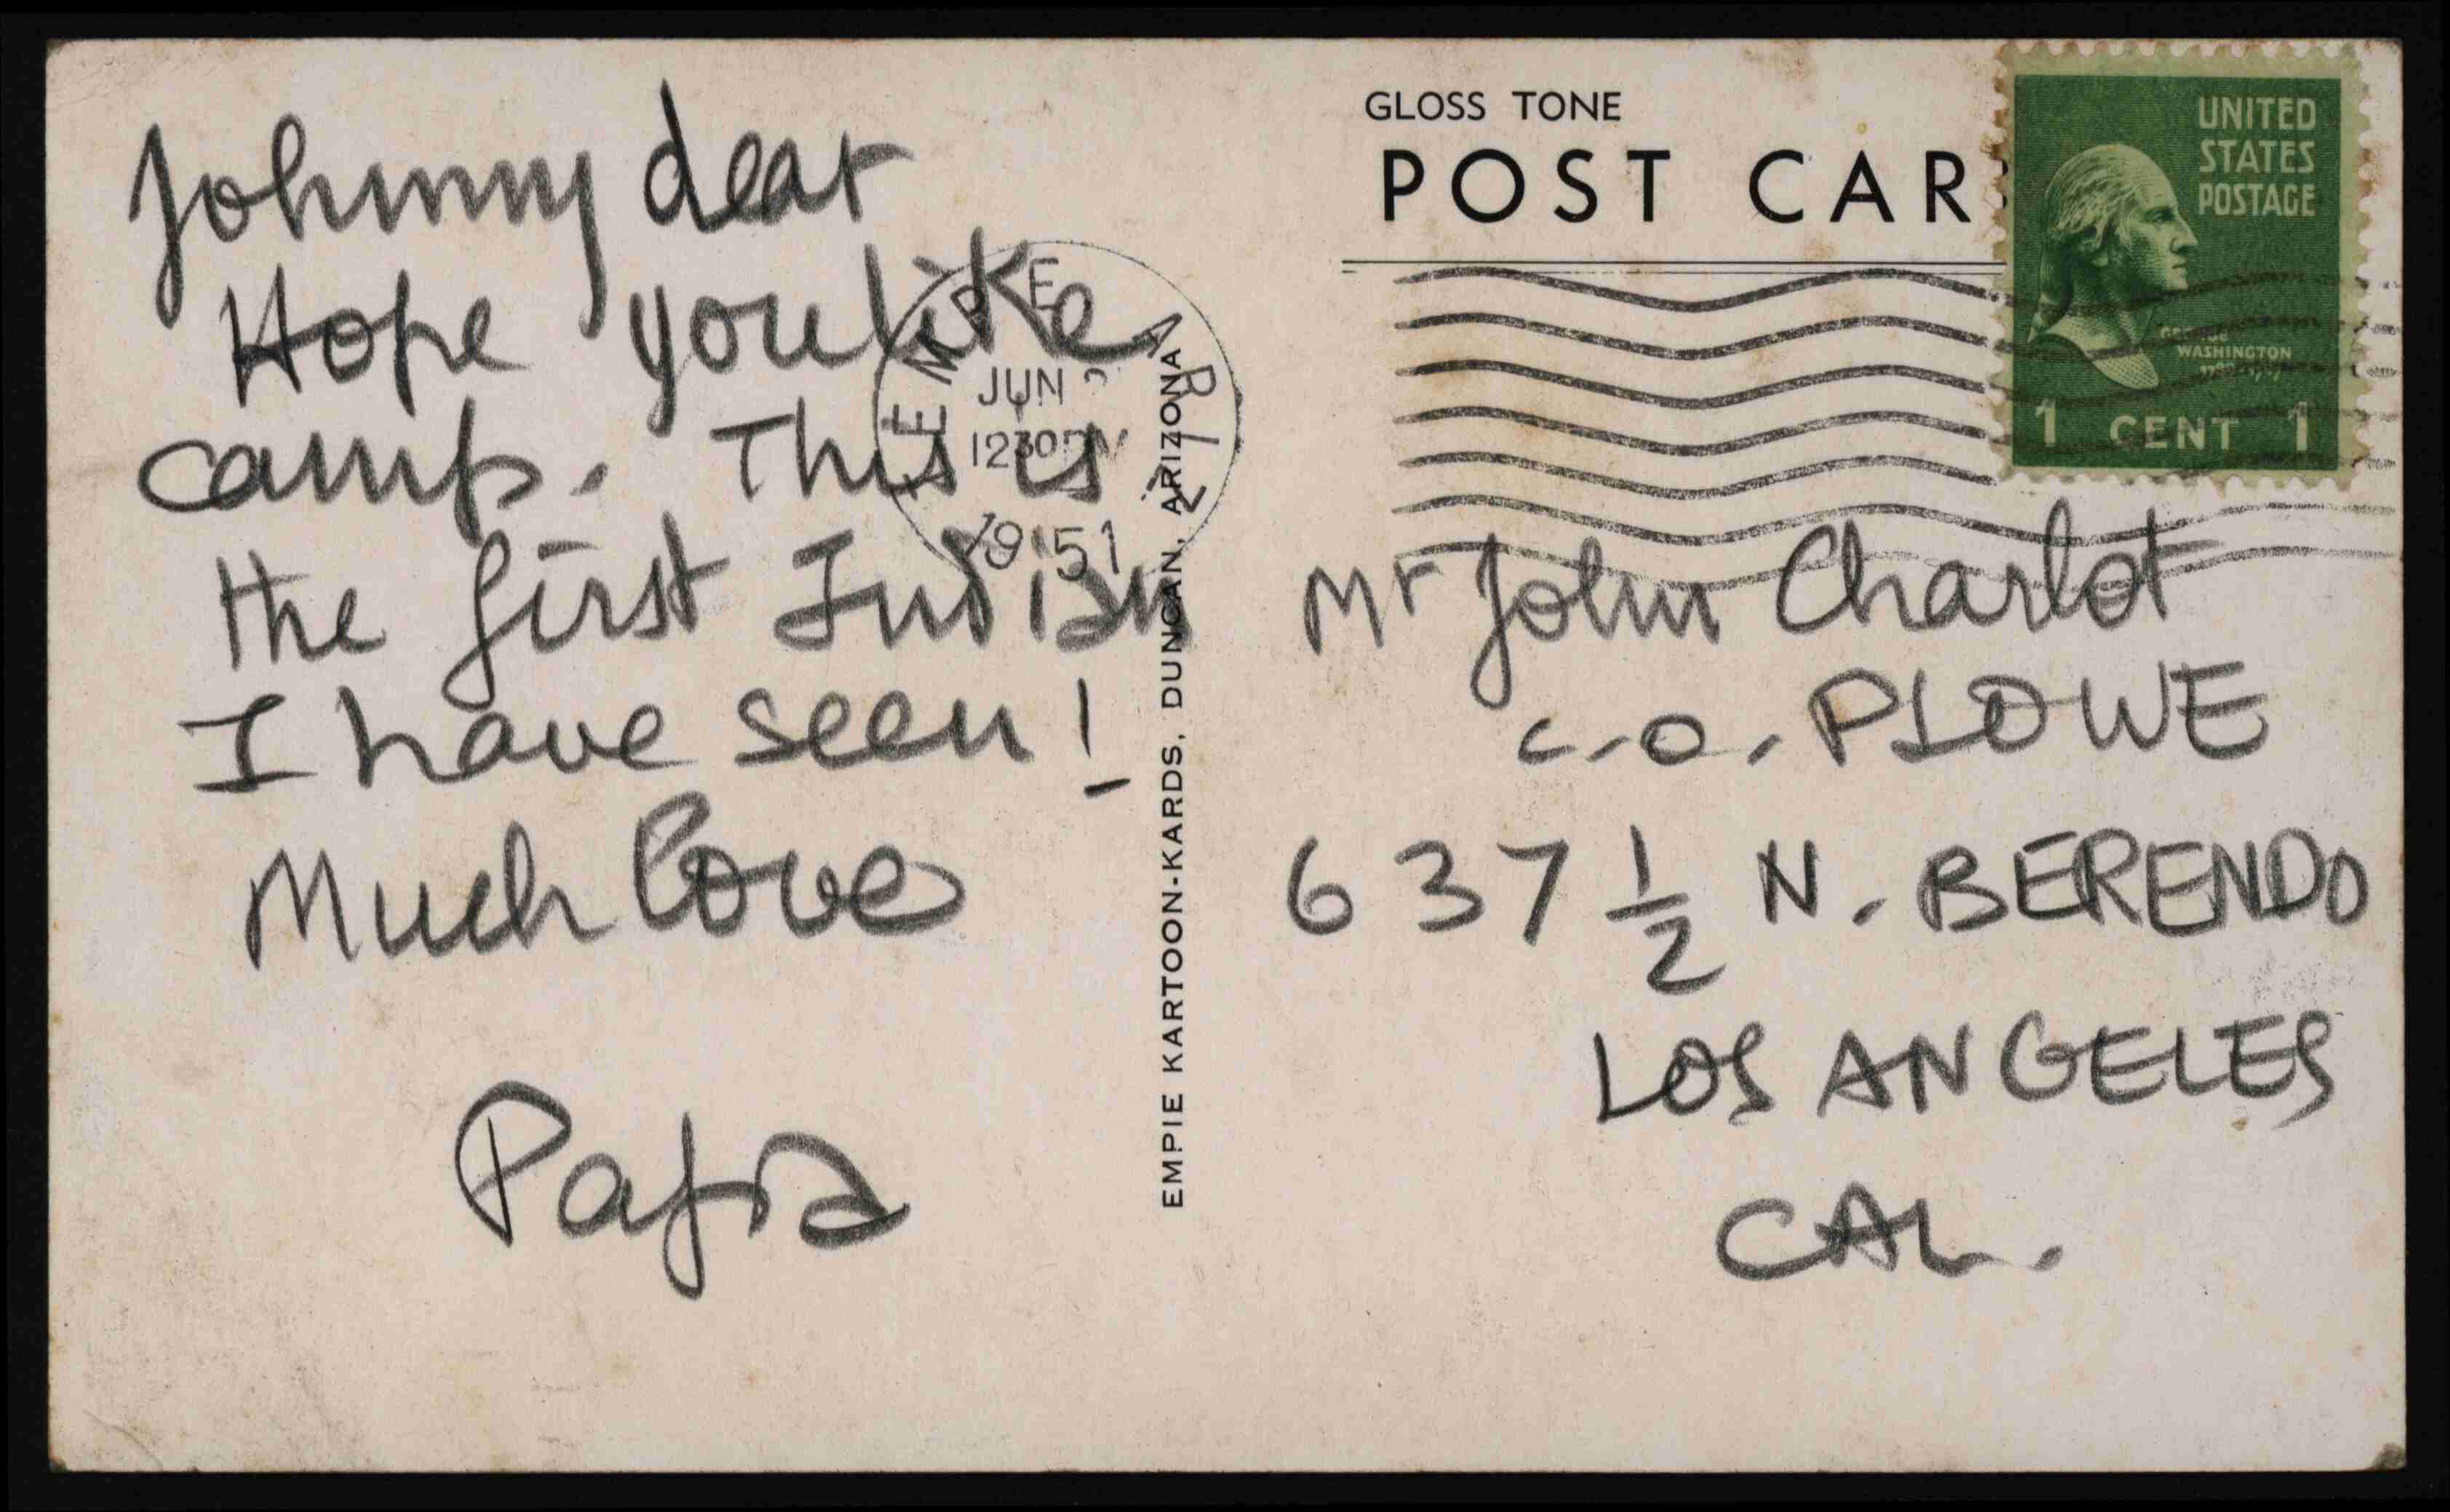 Johnny dear
Hope you like
camp. This is
the first Indian
I have seen!
Much love
Papa
EMPIE KARTOON-KARDS, DUNCAN, ARIZONA
TEMPE ARIZ
JUN
1230 PM
1951
GLOSS TONE
POST CAR
UNITED
STATES
POSTAGE
GEORGE
WASHINGTON
1 CENT 1
Mr John Charlot
c.o. PLOWE
637 1/2 N. BERENDO
LOS ANGELES
CAL.